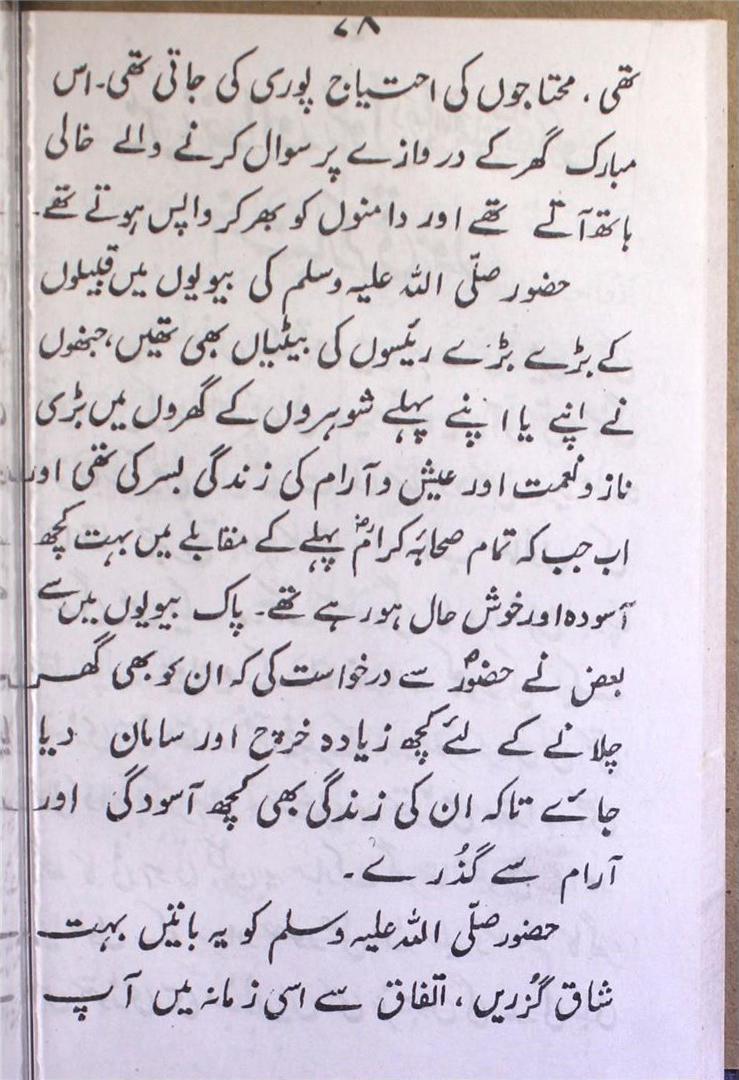 ۷۸
تھی، محتاجوں کی احتیاج پوری کی جاتی تھی۔ اس
مبارک گھر کے دروازے پر سوال کرنے والے خالی
ہاتھ آتے تھے اور دامنوں کو بھر کر واپس ہوتے تھے۔
حضور صلّی اللہ علیہ وسلم کی بیویوں میں قبیلوں
کے بڑے بڑے رئیسوں کی بیٹیاں بھی تھیں، جنھوں
نے اپنے یا اپنے پہلے شوہروں کے گھروں میں بڑی
ناز و نعمت اور عیش و آرام کی زندگی بسر کی تھی اور
اب جب کہ تمام صحابۂ کرامؓ پہلے کے مقابلے میں بہت کچھ
آسودہ اور خوش حال ہو رہے تھے۔ پاک بیویوں میں سے
بعض نے حضورؐ سے درخواست کی کہ ان کو بھی گھر
چلانے کے لئے کچھ زیادہ خرچ اور سامان دیا
جائے تاکہ ان کی زندگی بھی کچھ آسودگی اور
آرام سے گذُرے۔
حضور صلّی اللہ علیہ وسلم کو یہ باتیں بہت
شاق گزُریں، اتفاق سے اسی زمانہ میں آپ